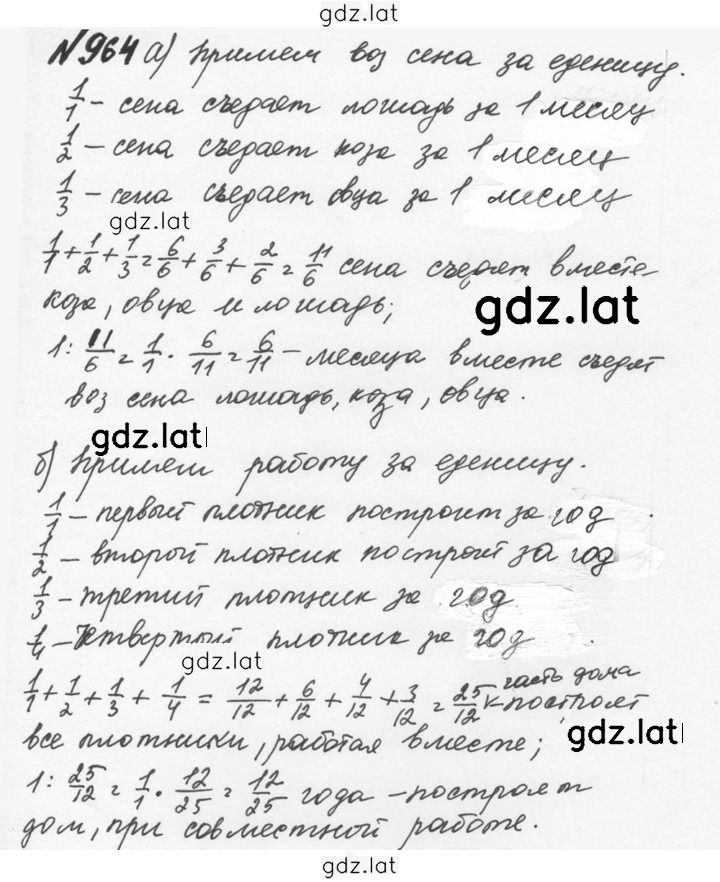 gdz.lat
№964 а) Примем воз сена за еденицу.
1/1 - сена съедает лошадь за 1 месяц
1/2 - сена съедает коза за 1 месяц
1/3 - сена съедает овца за 1 месяц
gdz.lat
1/1 + 1/2 + 1/3 = 6/6 + 3/6 + 2/6 = 11/6 сена съедят вместе
коза, овца и лошадь;
gdz.lat
1 : 11/6 = 1/1 · 6/11 = 6/11 - месяца вместе съедят
воз сена лошадь, коза, овца.
gdz.lat
б) Примем работу за еденицу.
1/1 - первый плотник построит за год
1/2 - второй плотник построит за год
1/3 - третий плотник за год
1/4 - Четвертый плотник за год
gdz.lat
часть дома
1/1 + 1/2 + 1/3 + 1/4 = 12/12 + 6/12 + 4/12 + 3/12 = 25/12 - построят
все плотники, работая вместе;
gdz.lat
1 : 25/12 = 1/1 · 12/25 = 12/25 года - построят
дом, при совместной работе.
gdz.lat